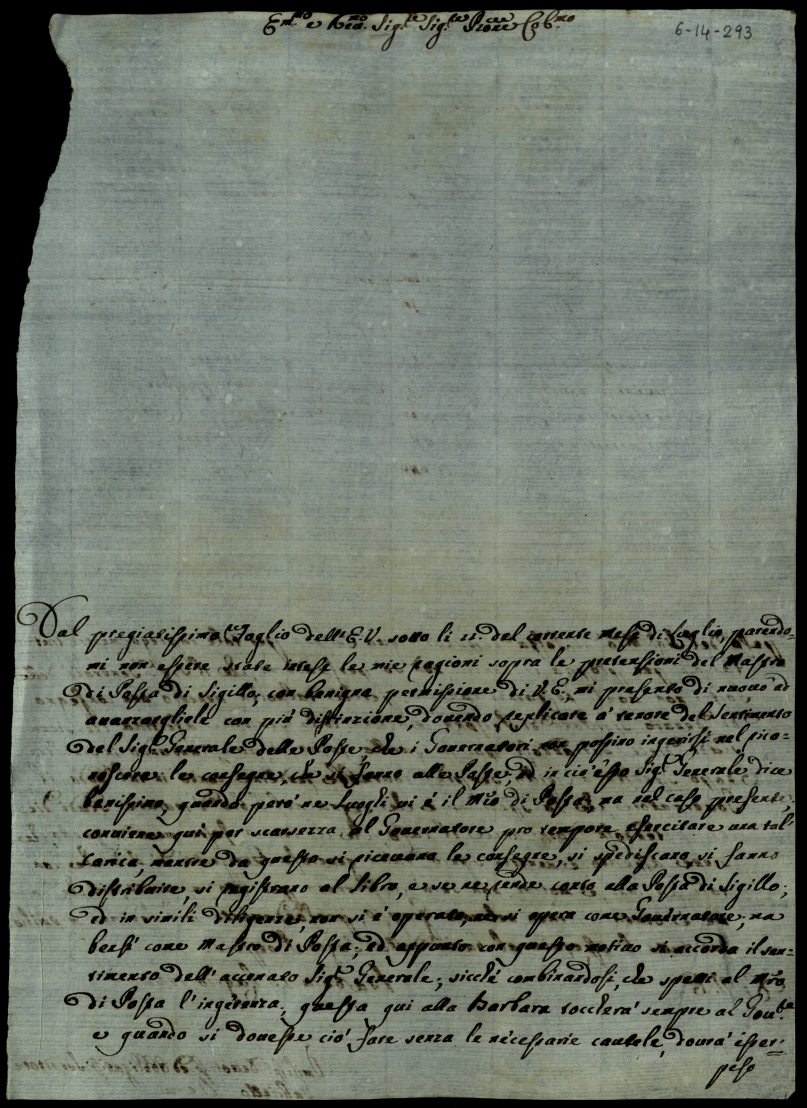 Em.mo e Rev.mo Sig.re Sig.re Prone Col.mo
6-14-293
Dal pregiatissimo Foglio dell'E.V. sotto li 21. del corrente mese di Luglio, parendo=
mi non essere state intese le mie ragioni sopra le pretensioni del Mastro
di Posta di Sigillo, con benigna permissione di V.E. mi presento di nuovo ad
anarrargliele con più distinzione, dovendo replicare a' tenore del sentimento
del Sig.r Generale delle Poste che i Governatori non possino ingerirsi nel rico=
noscere le consegne, che si fanno alle Poste, ed in ciò esso Sig.r Generale dice
benissimo, quando però ne Luoghi vi è il Mro di Posta, ma nel caso presente,
conviene qui per scarsezza al Governatore pro tempore esercitare una tal'
carica, mentre da questo si ricevono le consegne, si spediscono, si fanno
distribuire, si registrano al libro, e se ne rende conto alla Posta di Sigillo;
ed in simili diligenze, non si è operato, ne si opera come Governatore, ma
bensì come Mastro di Posta; ed appunto con questo motivo si accorda il sen=
timento dell'accenato Sig.r Generale; sicchè combinandosi, che spetti al Mro
di Posta l'ingerenza, questa qui alla Barbara toccherà sempre al Gov.re
e quando si dovesse ciò fare senza le necessarie cautele, dovrà esser
peso